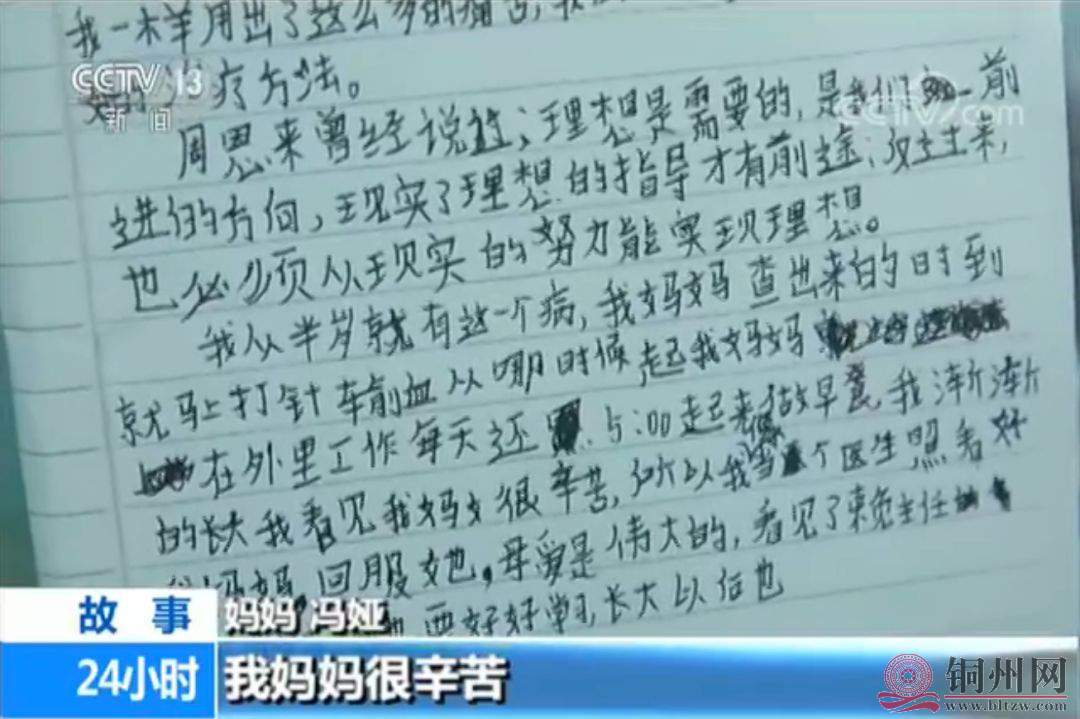 我一样用出了这么多的痛苦,我
好的治疗方法。
CCTV 13
新闻
CCTV.com
周恩来曾经说过:理想是需要的,是我们 前
进的方向,现实了理想的指导才有前途;反过来,
也必须从现实的努力能实现理想。
我从半岁就有这一个病,我妈妈查出来的时到
就马上打针车前血从哪时候起我妈妈
在外里工作每天还 5:00起来做早餐 我渐渐
的长大我看见我妈妈很辛苦,所以我当个医生照看好
妈妈.回服她,母爱是伟大的,看见了赖主任
要好好学习,长大以后也
故事
妈妈 冯娅
24小时
我妈妈很辛苦
铜州网
www.bltzw.com